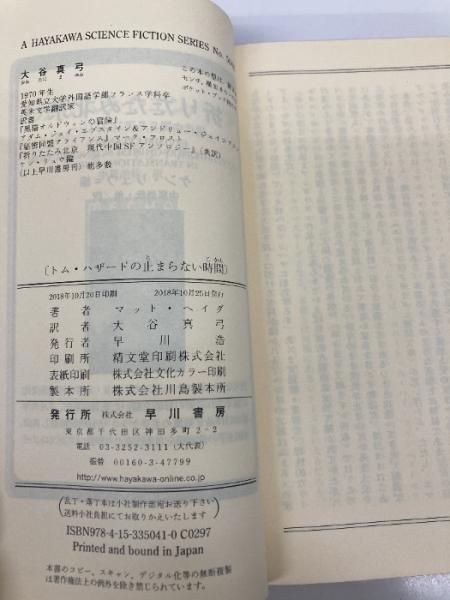 A HAYAKAWA SCIENCE FICTION SERIES No.
大谷真弓
おお たに ま ゆみ
1970年生
愛知県立大学外国語学部フランス学科卒
英米文学翻訳家
訳書
『黒猫オルドウィンの冒険』
アダム・ジェイ・エプスタイン&アンドリュー・ジェイコブスン
『秘密同盟アライアンス』マーク・フロスト
『折りたたみ北京 現代中国SFアンソロジー』(共訳)
ケン・リュウ編
(以上早川書房刊)他多数
この本の型は
ポケット・ブック
〔トム・ハザードの止まらない時間〕
2018年10月20日印刷 2018年10月25日発行
著者 マット・ヘイグ
訳者 大谷真弓
発行者 早川浩
印刷所 精文堂印刷株式会社
表紙印刷 株式会社文化カラー印刷
製本所 株式会社川島製本所
発行所 株式会社 早川書房
東京都千代田区神田多町2-2
電話 03-3252-3111(大代表)
振替 00160-3-47799
http://www.hayakawa-online.co.jp
(乱丁・落丁本は小社制作部宛お送り下さい
送料小社負担にてお取りかえいたします)
ISBN978-4-15-335041-0 C0297
Printed and bound in Japan
本書のコピー、スキャン、デジタル化等の無断複製
は著作権法上の例外を除き禁じられています。